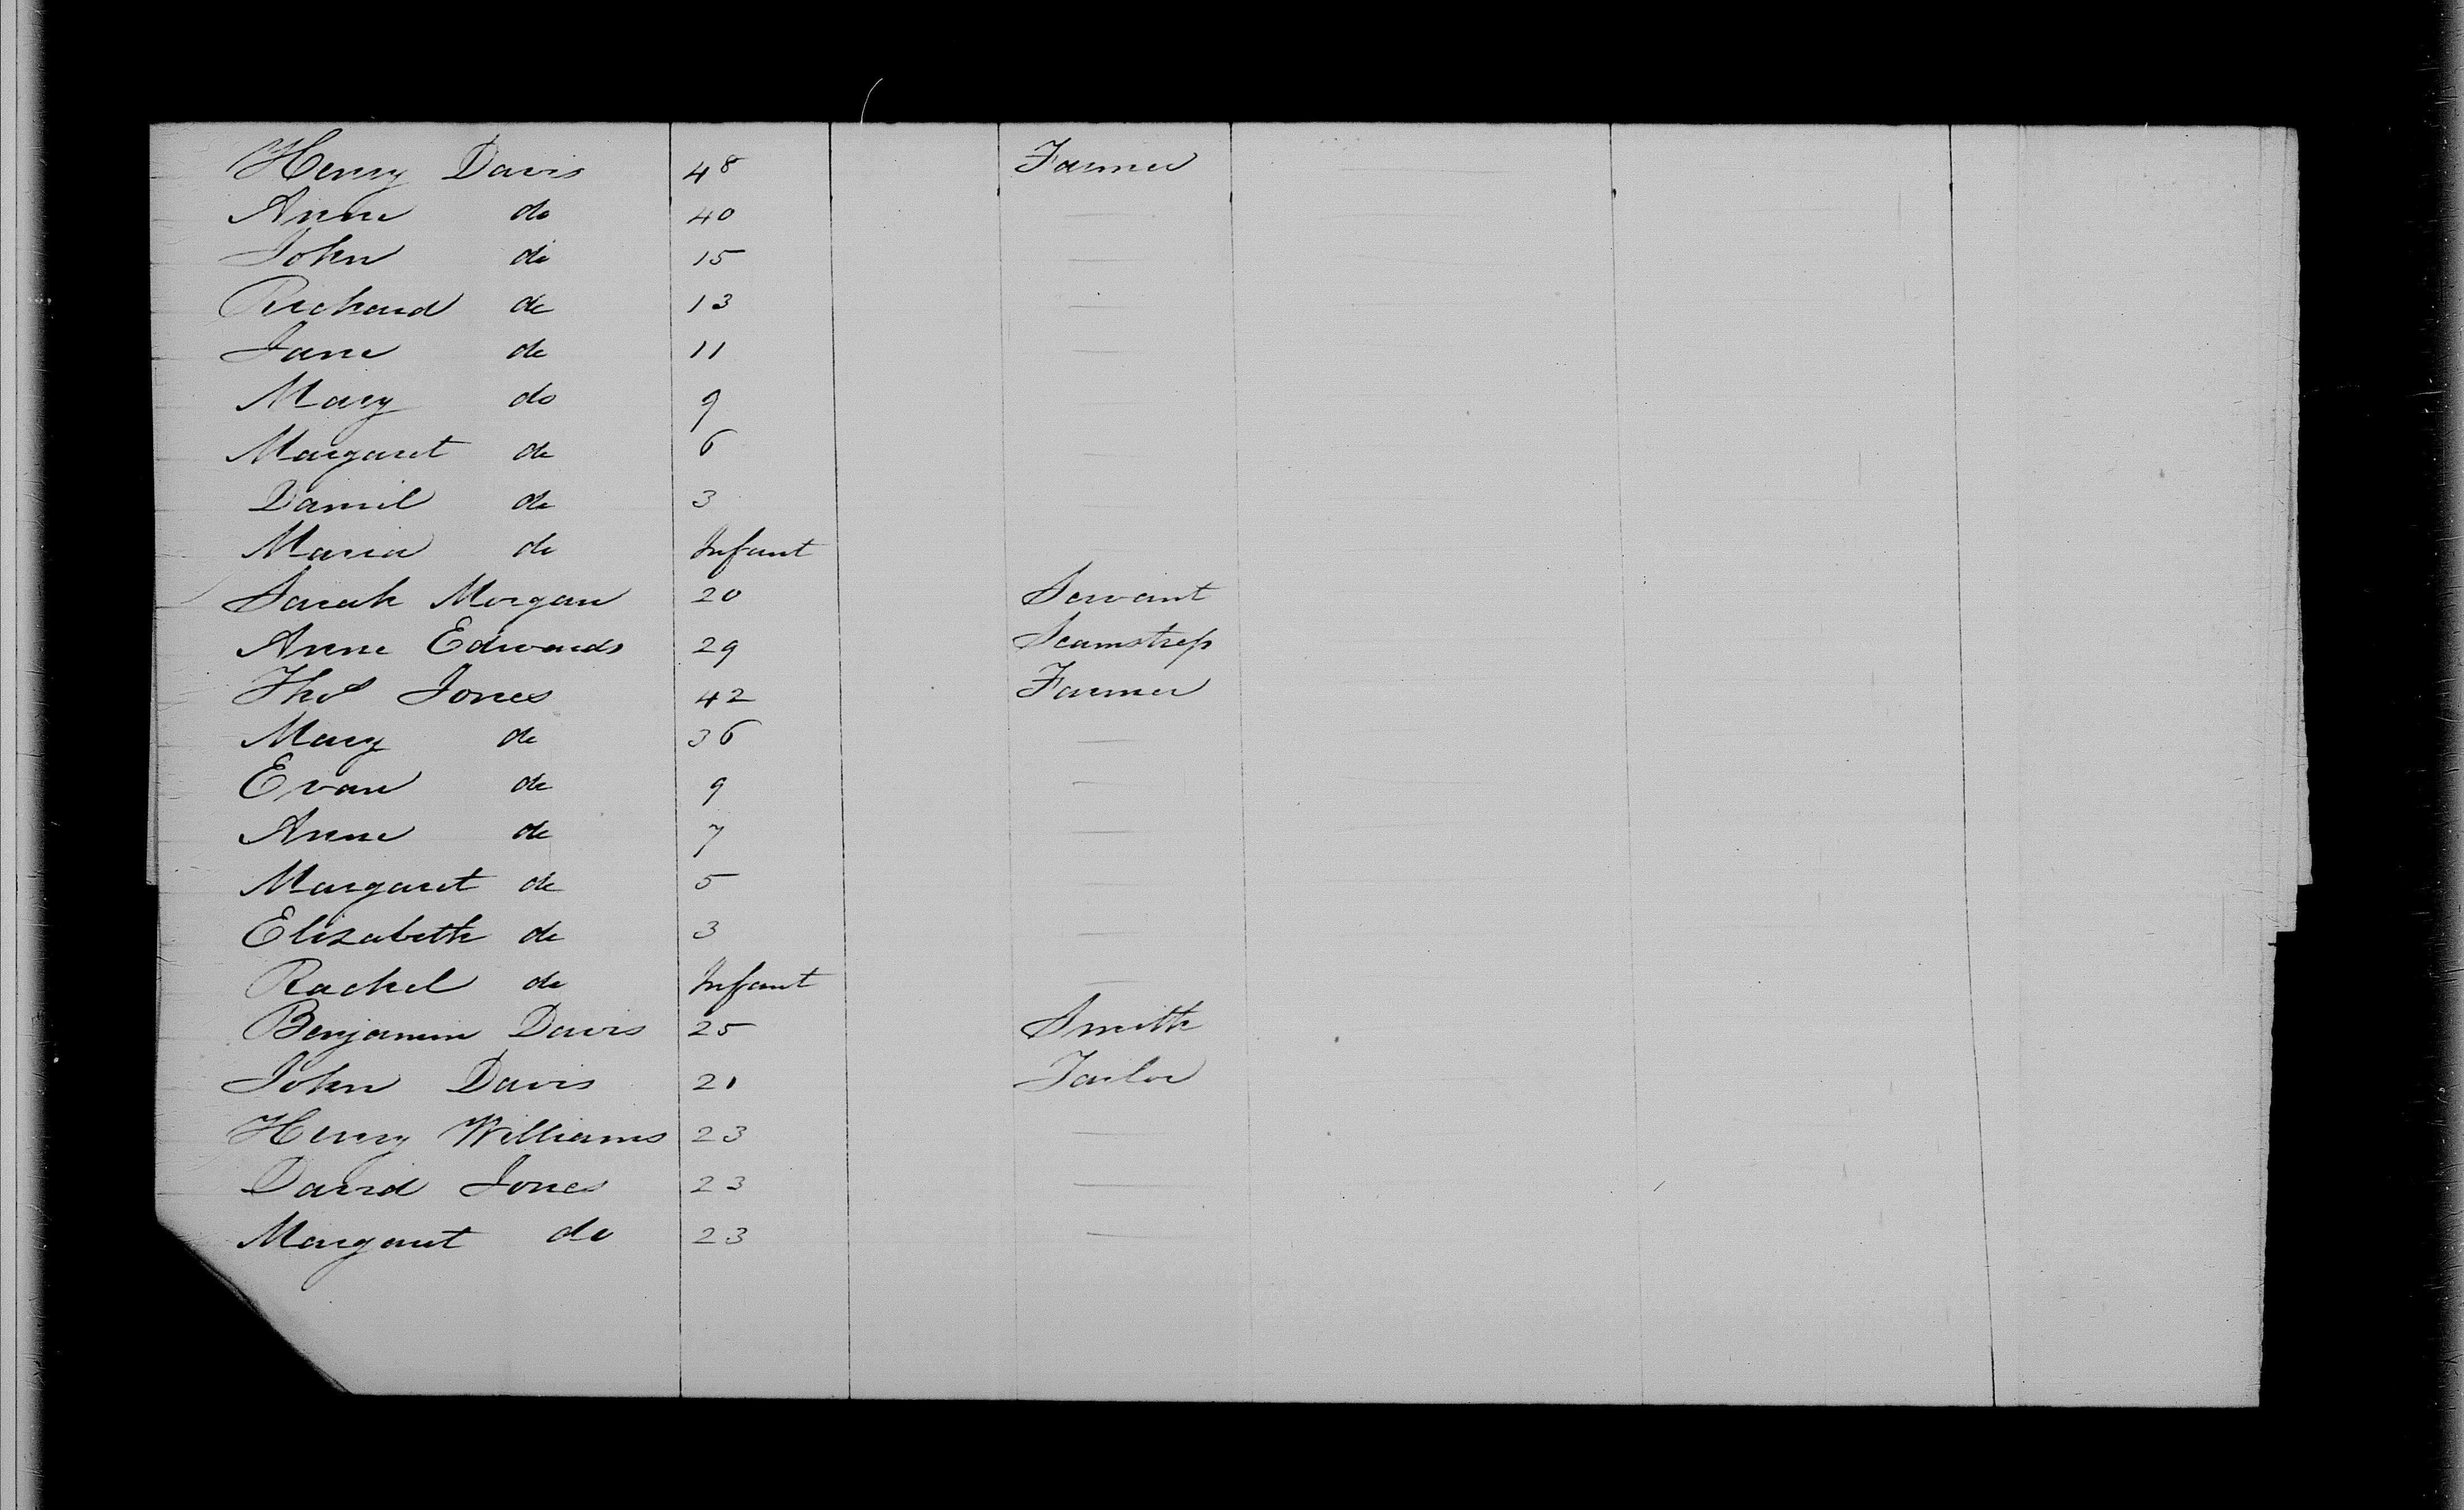 Henry Davis 48 Farmer
Anne do 40
John do 15
Richard do 13
Jane do 11
Mary do 9
Margaret do 6
Daniel do 3
Maria do Infant
Sarah Morgan 20 Servant
Anne Edwards 29 Seamstress
Thos Jones 42 Farmer
Mary do 36
Evan do 9
Anne do 7
Margaret do 5
Elizabeth do 3
Rachel do Infant
Benjamin Davis 25 Smith
John Davis 21 Tailor
Henry Williams 23
David Jones 23
Margaret do 23